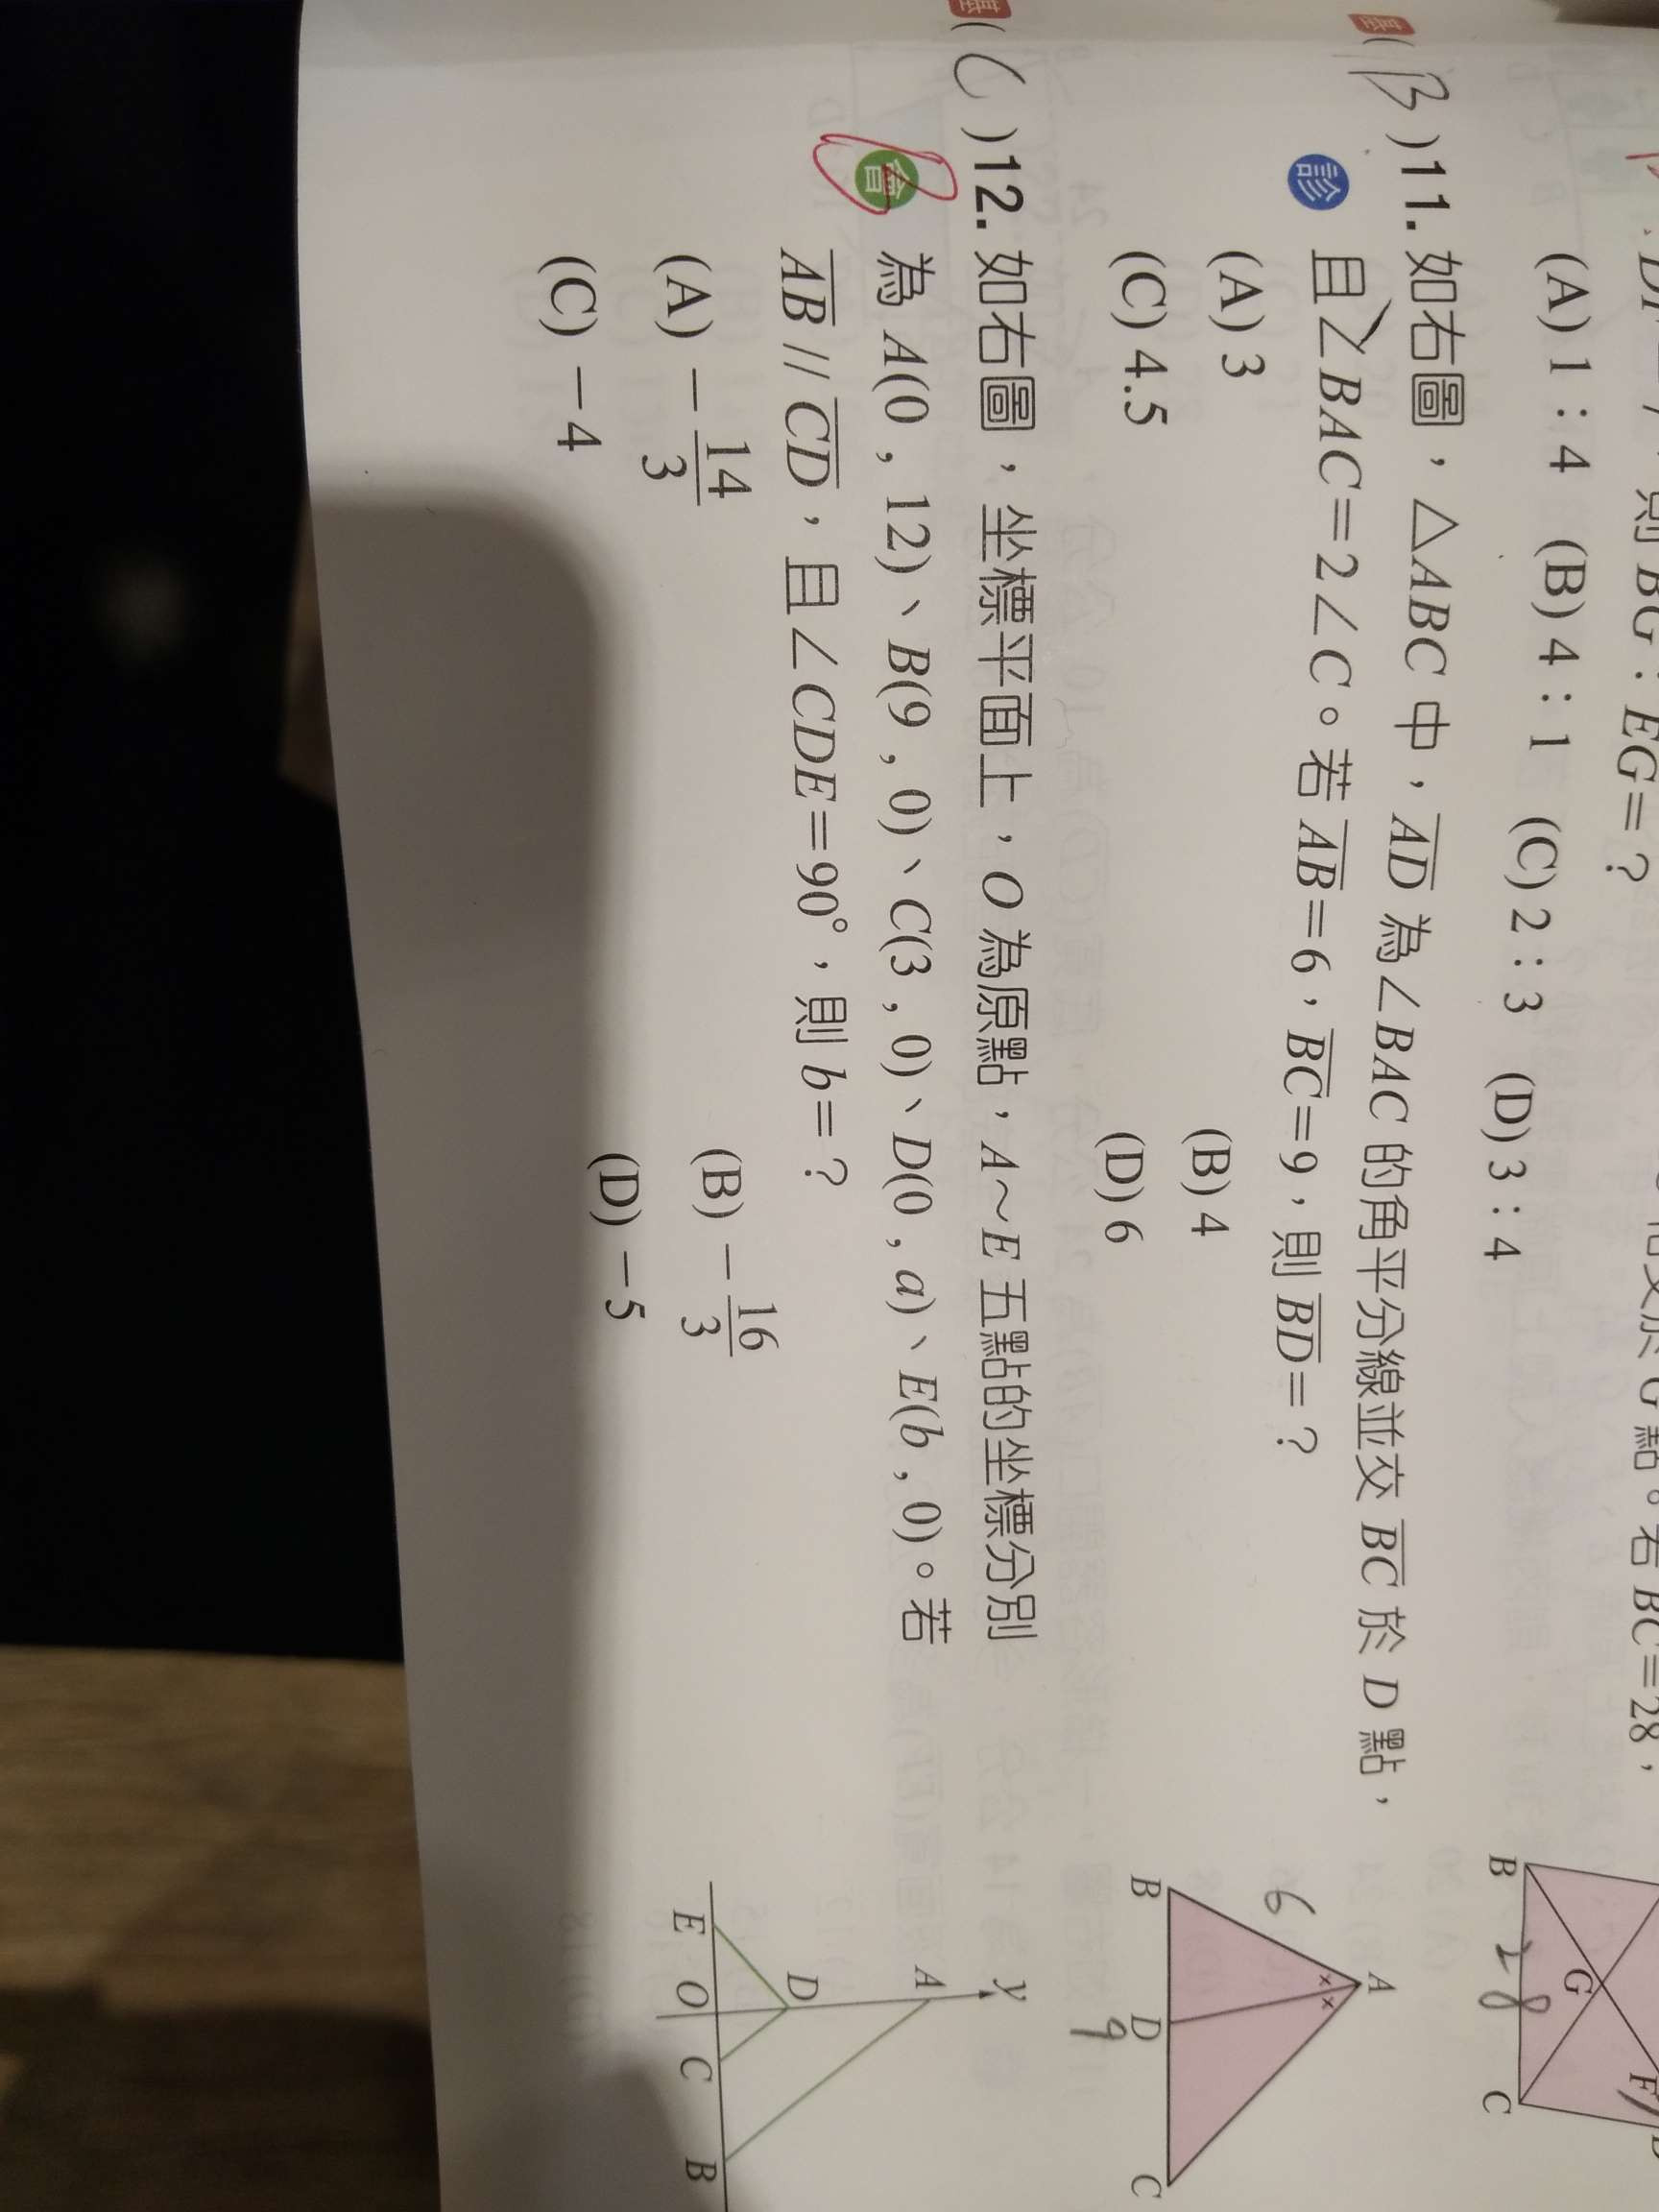 則 BG : EG= ?
(A) 1 : 4 (B) 4 : 1 (C) 2 : 3 (D) 3 : 4
(B)11. 如右圖，△ABC 中，AD 為∠BAC 的角平分線並交 BC 於 D 點，
診 且∠BAC=2∠C。若 AB=6，BC=9，則 BD= ?
(A) 3 (B) 4
(C) 4.5 (D) 6
(C)12. 如右圖，坐標平面上，O 為原點，A～E 五點的坐標分別
會 為 A(0 , 12)、B(9 , 0)、C(3 , 0)、D(0 , a)、E(b , 0)。若
AB // CD，且∠CDE=90°，則 b= ?
(A) －14/3 (B) －16/3
(C) －4 (D) －5
B G C
28
A
6
B D C
9
y
A
D
E O C B